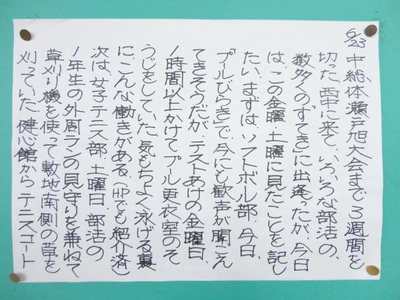 6/23
中総体瀬戸旭大会まで3週間を
切った。西中に来て、いろいろな部活の、
数多くの「すてき」に出逢ったが、今日
は、この金曜、土曜に見たことを記し
たい。まずは、ソフトボール部。今日、
プールびらきで、今にも歓声が聞こえ
てきそうだが、テストあけの金曜日、
1時間以上かけてプール更衣室のそ
うじをしていた。気もちよく泳げる裏
に、こんな働きがある。HPでも紹介済
次は、女子テニス部。土曜日、部活の
1年生の外周マラの見守りを兼ねて
草刈り機を使って敷地南側の草を
刈っていた。健心館からテニスコート